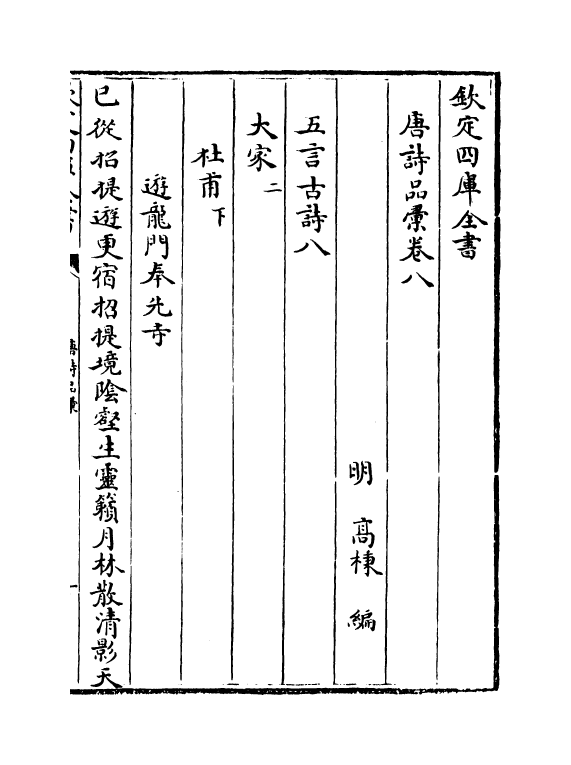 欽定四庫全書
唐詩品彚卷八
明 高棅 編
五言古詩八
大家二
杜甫下
遊龍門奉先寺
已從招提遊更宿招提境陰壑生靈籟月林散清影天
唐詩品彚
一